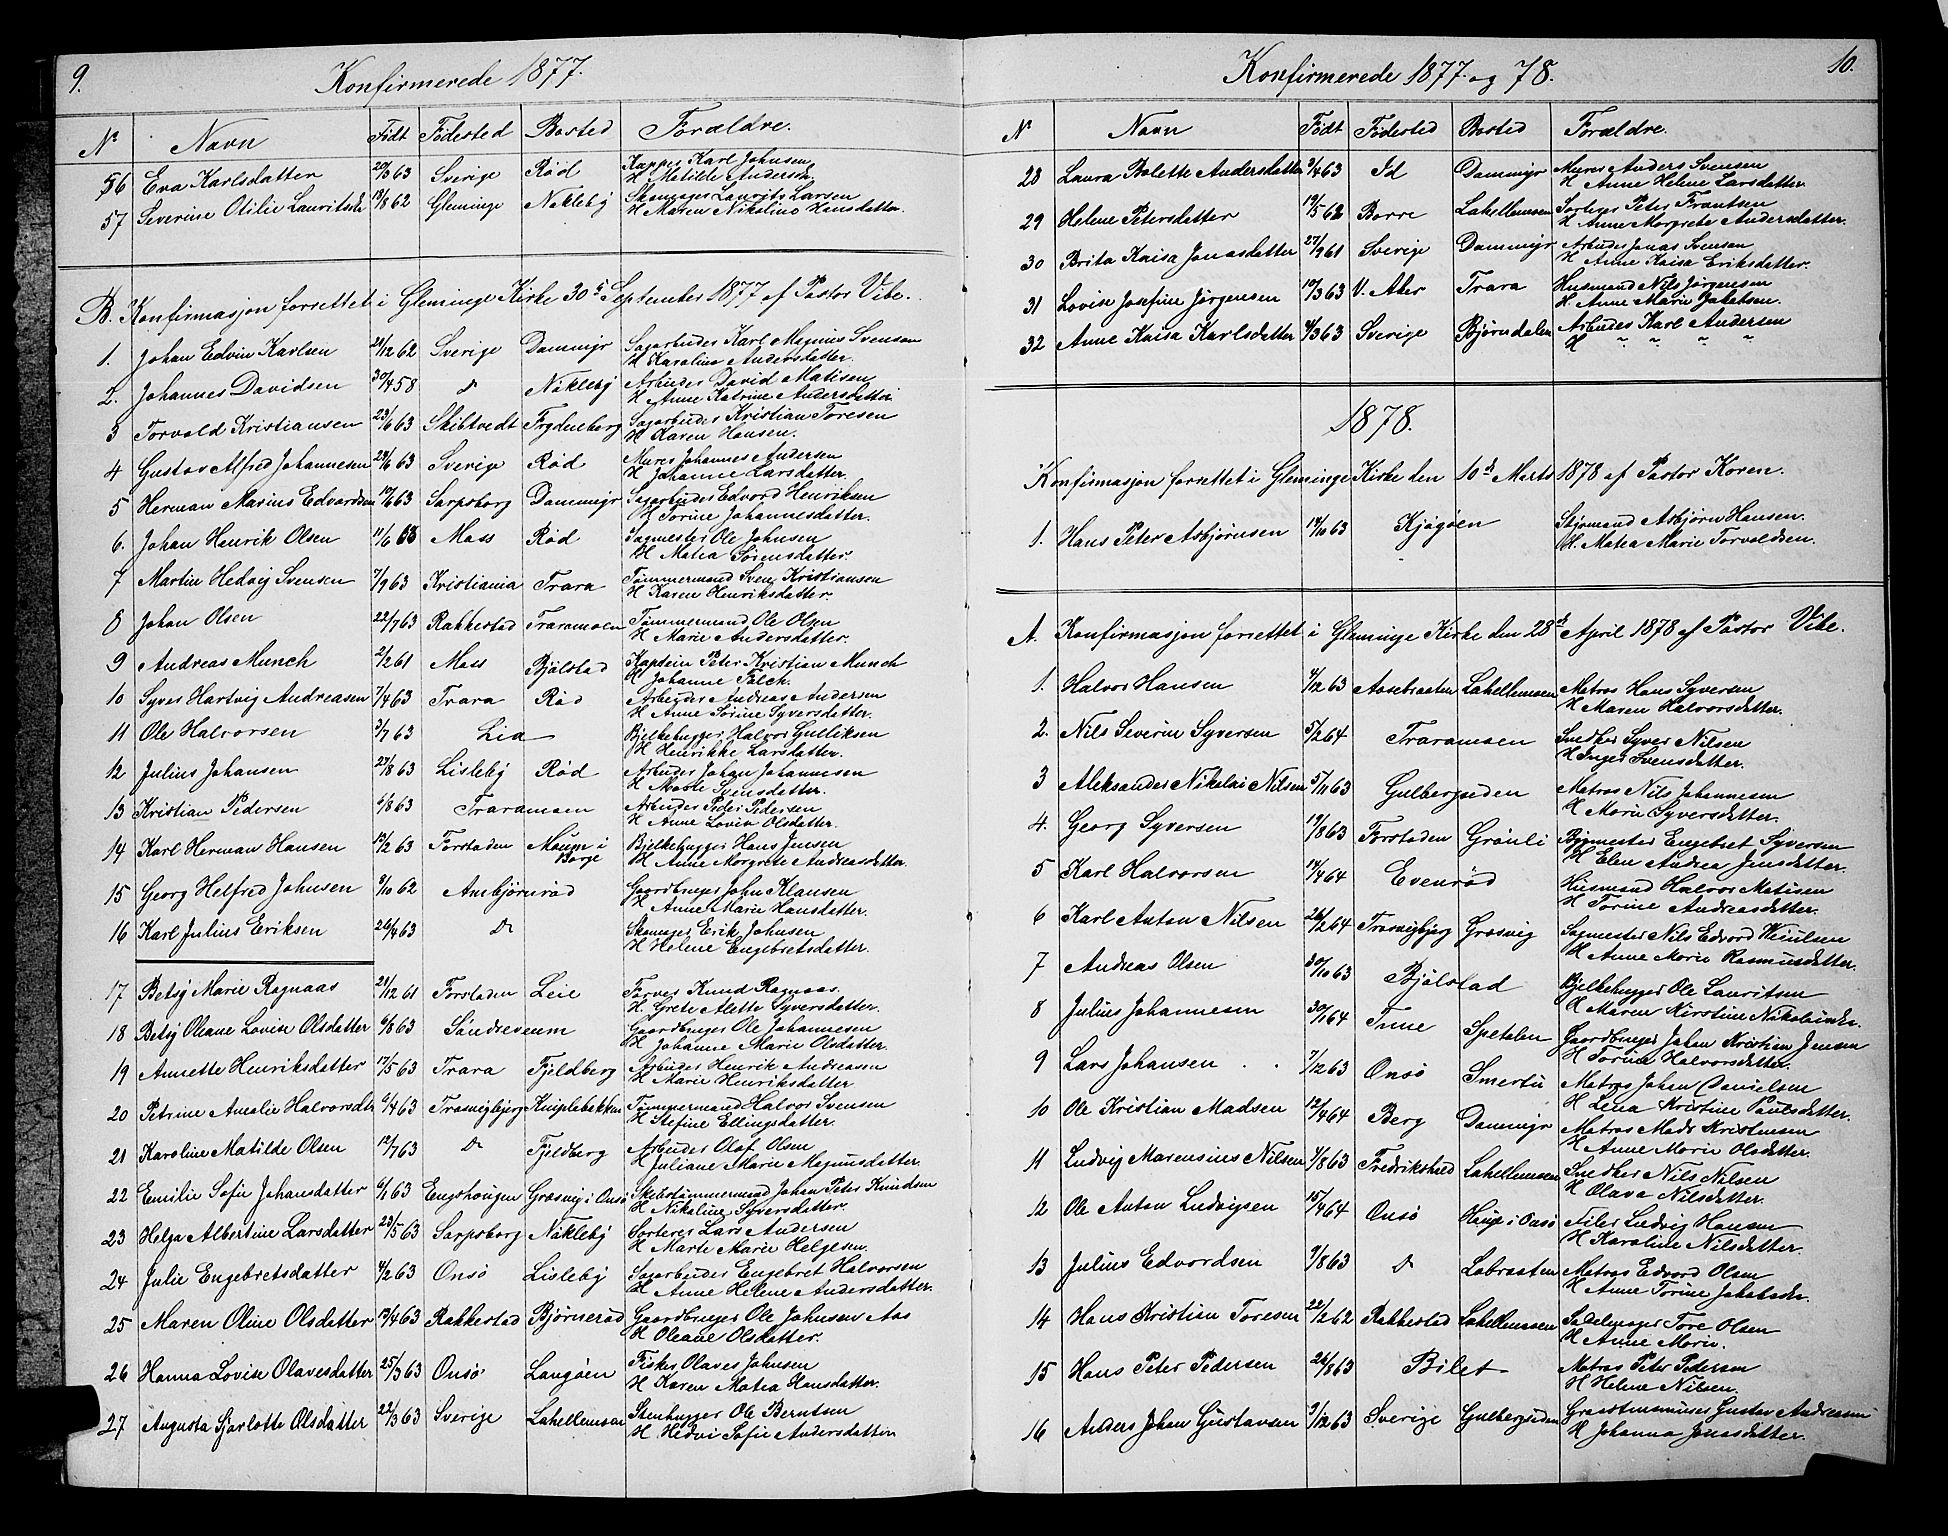 9.
Konfirmerede 1877.
N Navn Födt Födested Bosted Forældre.
56 Eva Karlsdatter 20/3 63 Sverige Röd Kapper Karl Johnsen
H Matilde Andersen
57 Severine Otilie Lauritsdr 18/8 62 Gleminge Nakleby Skomager Laurits Larsen
H Maren Nikoline Hansdatter.
B. Konfirmasjon forrettet i Gleminge Kirke 30te September 1877 af Pastor Vibe.
1. Johan Edvin Karlsen 24/12 62 Sverige Dammyr Sagarbeider Karl Magnus Svensen
H Karoline Andersdatter.
2. Johannes Davidsen 30/4 58 do Nakleby Arbeider David Matisen
H Anne Katrine Andersdatter
3 Torvald Kristiansen 23/6 63 Skibtvedt Trydenborg Sagarbeider Kristian Toresen
H Karen Hansen.
4 Gustav Alfred Johannesen 24/6 63 Sverige Röd Murer Johannes Andersen
H Johanne Larsdatter.
5 Herman Marius Edvardsen 10/6 63 Sarpsborg Dammyr Sagarbeider Edvard Henriksen
H Torine Johannesdatter.
6. Johan Henrik Olsen 11/6 63 Moss Röd Sagmester Ole Johnsen
H Matea Sörensdatter
7 Martin Hedvig Svensen 7/9 63 Kristiania Trara Tömmermand Sven Kristiansen
H Karen Henriksdatter.
8 Johan Olsen 22/7 63 Rakkestad Traramoen Tömmermand Ole Olsen
H Marie Andersdatter.
9 Andreas Munch 2/2 61 Moss Bjölstad Kaptein Peter Kristian Munch
H Johanne Falch.
10 Syver Hartvig Andreasen 7/4 63 Trara Röd Arbeider Andreas Andersen
H Anne Sörine Syversdatter.
11 Ole Halvorsen 3/7 63 Lia Bjelkehugger Halvor Gulliksen
H Henrikke Larsdatter.
12 Julius Johansen 27/8 63 Lisleby Röd Arbeider Johan Johannesen
H Marte Jensdatter.
13 Kristian Pedersen 6/8 63 Traramoen Arbeider Peder Pedersen
H Anne Lovise Olsdatter.
14 Karl Herman Hansen 12/2 63 Forstaden Moum i Borge Bjelkehugger Hans Jensen
H Anne Margrete Andreasdatter.
15 Georg Helfred Johnsen 8/10 62 Ambjörnröd Gaardbruger John Klausen
H Anne Marie Hansdatter.
16 Karl Julius Eriksen 26/4 63 do Skomager Erik Johnsen
H Helene Engebretsdatter.
17 Betsy Marie Ragnaas 21/12 61 Forstaden Leie Farver Knud Ragnaas.
H. Grete Alette Syversdatter.
18 Betsy Oleane Lovise Olsdatter 6/8 63 Söndreveum Gaardbruger Ole Johannesen
H Johanne Marie Olsdatter.
19 Annette Henriksdatter 17/5 63 Trara Fjeldberg Arbeider Henrik Andreasen
H Marie Henriksdatter
20 Petrine Amalie Halvorsdtr 6/4 63 Trosvigbjerg Kniplebakken Tömmermand Halvor Svensen
H Stefine Ellingsdatter.
21 Karoline Matilde Olsen 12/7 63 do Fjeldberg Arbeider Olaf Olsen
H Juliane Marie Magnusdatter.
22 Emilie Sofie Johansdatter 6/1 63 Engshougen Græsvig i Onsö Skibstömmermand Johan Peter Knudsen
H Nikoline Syversdatter.
23 Helga Albertine Larsdatter 23/5 63 Sarpsborg Nakleby Sorterer Lars Andersen
H Marte Marie Helgesen.
24 Julie Engebretsdatter 4/2 63 Onsö Lisleby Sagarbeider Engebret Halvorsen
H Anne Helene Andersdatter.
25 Maren Oline Olsdatter 13/4 63 Rakkestad Björneröd Gaardbruger Ole Johnsen Aas
H Oleane Olsdatter.
26 Hanna Lovise Olavesdatter 25/3 63 Onsö Langöen Fisker Olaves Johnsen
H Karen Matea Hansdatter.
27 Augusta Sjarlotte Olsdatter 22/3 63 Sverige Lahellemoen Stenhugger Ole Berntsen
H Hedvi Sofie Andersdatter
10.
Konfirmerede 1877 og 78.
N Navn Födt Födested Bosted Forældre.
28 Laura Bolette Andersdatter 9/4 63 Id Dammyr Murer Anders Svensen
H Anne Helene Larsdatter
29 Helene Petersdatter 19/5 62 Borre Lahellemoen Sorterer Peter Frantsen
H Anne Margrete Andersdatter.
30 Brita Kaisa Jonasdatter 27/9 61 Sverige Dammyr Arbeider Jonas Svensen
H Anne Kaisa Eriksdatter.
31 Lovise Josefine Jörgensen 10/3 63 V. Aker Trara Husmand Nils Jörgensen
H. Anne Marie Jakobsen.
32 Anne Kaisa Karlsdatter 4/3 63 Sverige Björndalen Arbeider Karl Andersen
H " " " "
1878.
Konfirmasjon forrettet i Gleminge Kirke den 10de Marts 1878 af Pastor Koren.
1. Hans Peter Asbjörnsen 14/10 63 Kjögöen Styrmand Asbjörn Hansen.
H. Matea Marie Torvaldsen.
A. Konfirmasjon forrettet i Gleminge Kirke den 28de April 1878 af Pastor Vibe.
1. Halvor Hansen 4/12 63 Aasebraaten Lahellemoen Matros Hans Syversen
H Maren Halvorsdatter.
2. Nils Severin Syversen 5/2 64 Traramoen Snedker Syver Nilsen
H Inger Svensdatter.
3 Aleksander Nikolai Nilsen 5/11 63 Gulbergsiden Matros Nils Johannesen
H Marie Syversdatter.
4. Georg Syversen 17/8 63 Forstaden Grönli Bygmester Engebret Syversen
H Elen Andrea Jensdatter.
5 Karl Halvorsen 14/4 64 Evenröd Husmand Halvor Matisen
H Torine Andreasdatter.
6 Karl Anton Nilsen 26/2 64 Trosvigbjerg Græsvig Sagmester Nils Edvard
H Anne Marie Rasmusdatter.
7 Andreas Olsen 30/10 63 Bjölstad Bjelkehugger Ole Lauritsen
H Maren Kirstine Nikolaisdr.
8 Julius Johannesen 30/1 64 Tune Spetalen Gaardbruger Johan Kristian Jensen
H Torine Halvorsdatter.
9 Lars Johansen 7/12 63 Onsö Smertu Matros Johan Danielsen
H Lena Kristine Paulsdatter.
10 Ole Kristian Madsen 12/4 64 Berg Dammyr Matros Mads Kristensen
H Anne Marie Olsdatter.
11 Ludvig Marensius Nilsen 1/8 63 Fredrikshald Lahellemoen Snedker Nils Nilsen
H Olava Nilsdatter.
12 Ole Anton Ludvigsen 15/4 64 Onsö Hauge i Onsö Filer Ludvig Hansen
H Karoline Nilsdatter.
13 Julius Edvardsen 9/8 63 do Labraaten Matros Edvard Olsen
H Anne Torine Jakobsdr.
14 Hans Kristian Toresen 22/2 62 Rakkestad Lahellemoen Sadelmager Tore Olsen
H Anne Marie.
15 Hans Peter Pedersen 24/8 63 Bilet Matros Peter Pedersen
H Helene Nilsen.
16 Anders Johan Gustavsen 9/12 63 Sverige Gulbergsiden Graastensmurer Gustav Andreasen
H Johanna Jonasdatter.